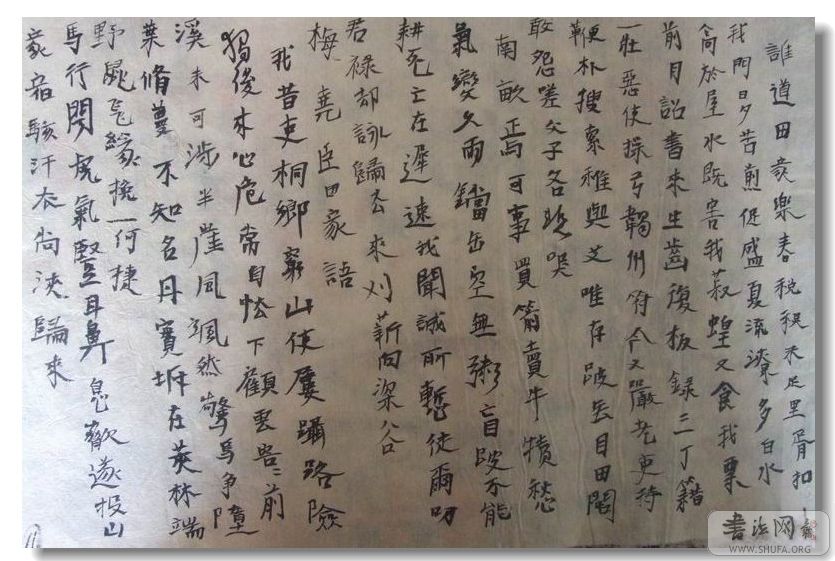 誰道田家樂春税秋未足里胥扣
我門日夕苦煎促盛夏流潦多白水
高於屋水既害我菽蝗又食我粟
前月詔書來生齒復板錄三丁籍
一壯惡使操弓韣州符今又嚴老吏持
鞭朴搜索稚與艾唯存跛無目田閭
敢怨嗟父子各悲哭
南畝焉可事買箭賣牛犢愁
氣變久雨鐺缶空無粥盲跛不能
耕死亡在遲速我聞誠所慙徒爾叨
君禄却詠歸去來刈薪向深谷
梅堯臣田家語
我昔吏桐鄉窮山使屢躡路險
獨後來心危常自怯下顧雲容〻前
溪未可涉半崖風颯然驚鳥爭墮
葉脩蔓不知名丹實坼在莢林端
野鼠飛緣挽一何捷
馬行聞虎氣豎耳鼻息歙遂投山
家宿駭汗衣尚浹歸來
書法网
WWW.SHUFA.ORG